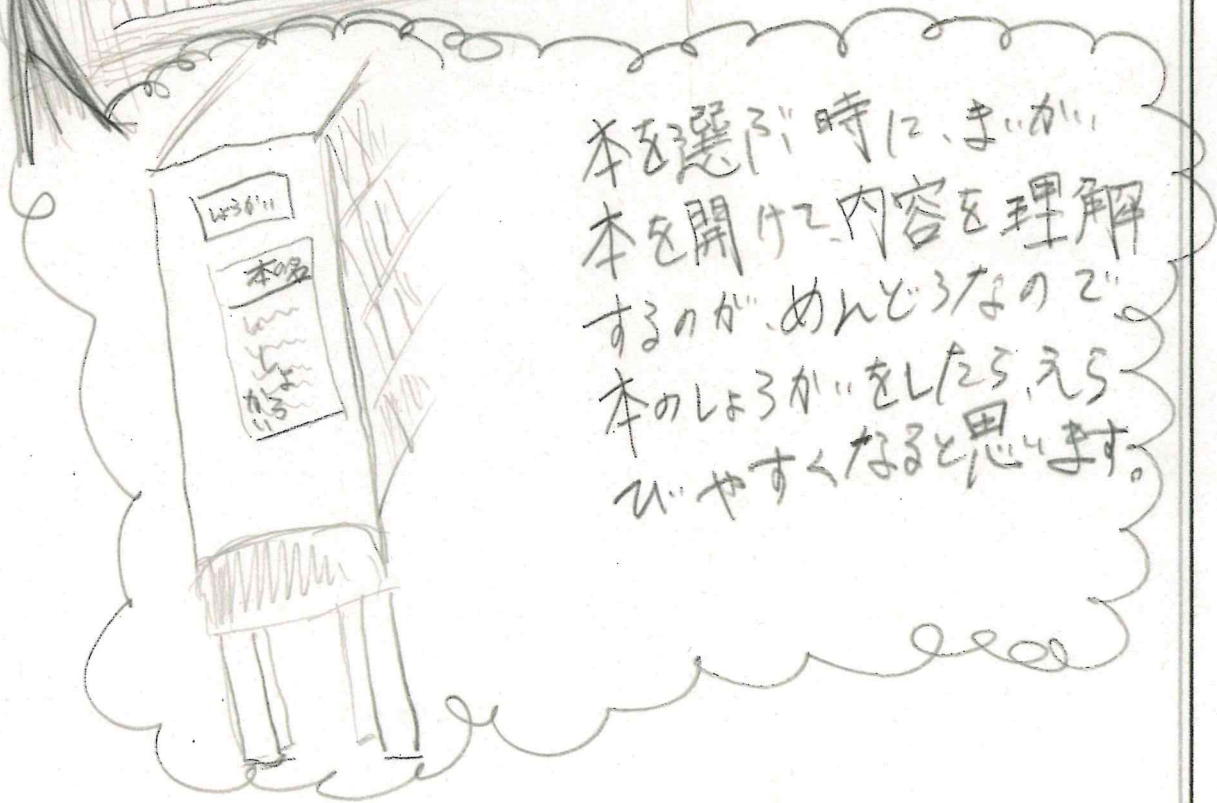 しょうかい
本の名
しょ
う
かい
本を選ぶ時に、まいかい
本を開けて、内容を理解
するのが、めんどうなので、
本のしょうかいをしたら、えら
びやすくなると思います。